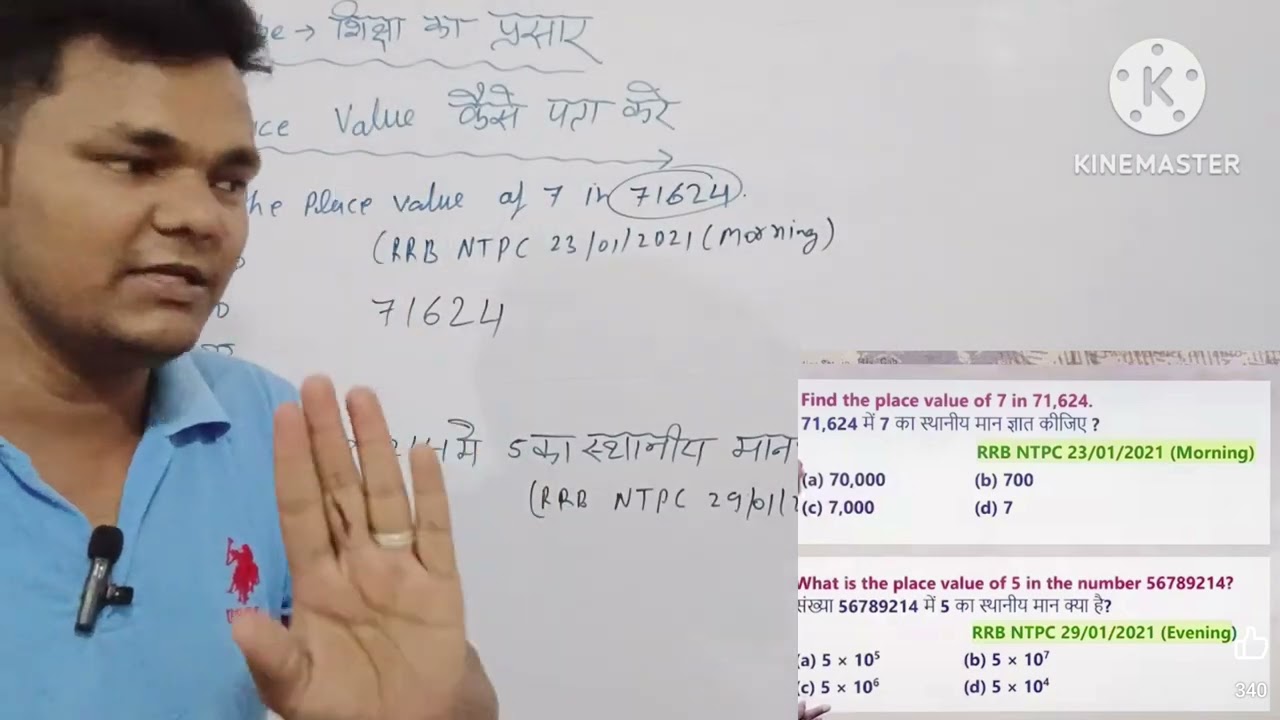 → शिक्षा का प्रसार
Value कैसे पता करे
the Place value of 7 in 71624.
(RRB NTPC 23/01/2021 (Morning)
71624
में 5 का स्थानीय मान
(RRB NTPC 29/01/
KINEMASTER
Find the place value of 7 in 71,624.
71,624 में 7 का स्थानीय मान ज्ञात कीजिए ?
RRB NTPC 23/01/2021 (Morning)
(a) 70,000 (b) 700
(c) 7,000 (d) 7
What is the place value of 5 in the number 56789214?
संख्या 56789214 में 5 का स्थानीय मान क्या है?
RRB NTPC 29/01/2021 (Evening)
(a) 5 × 10⁵ (b) 5 × 10⁷
(c) 5 × 10⁶ (d) 5 × 10⁴
340